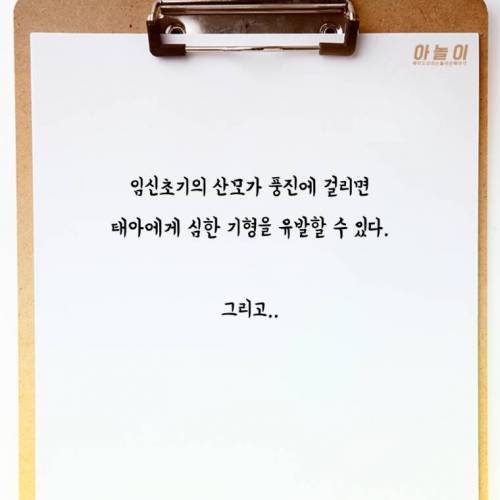 아놀이
임신초기의 산모가 풍진에 걸리면
태아에게 심한 기형을 유발할 수 있다.
그리고..